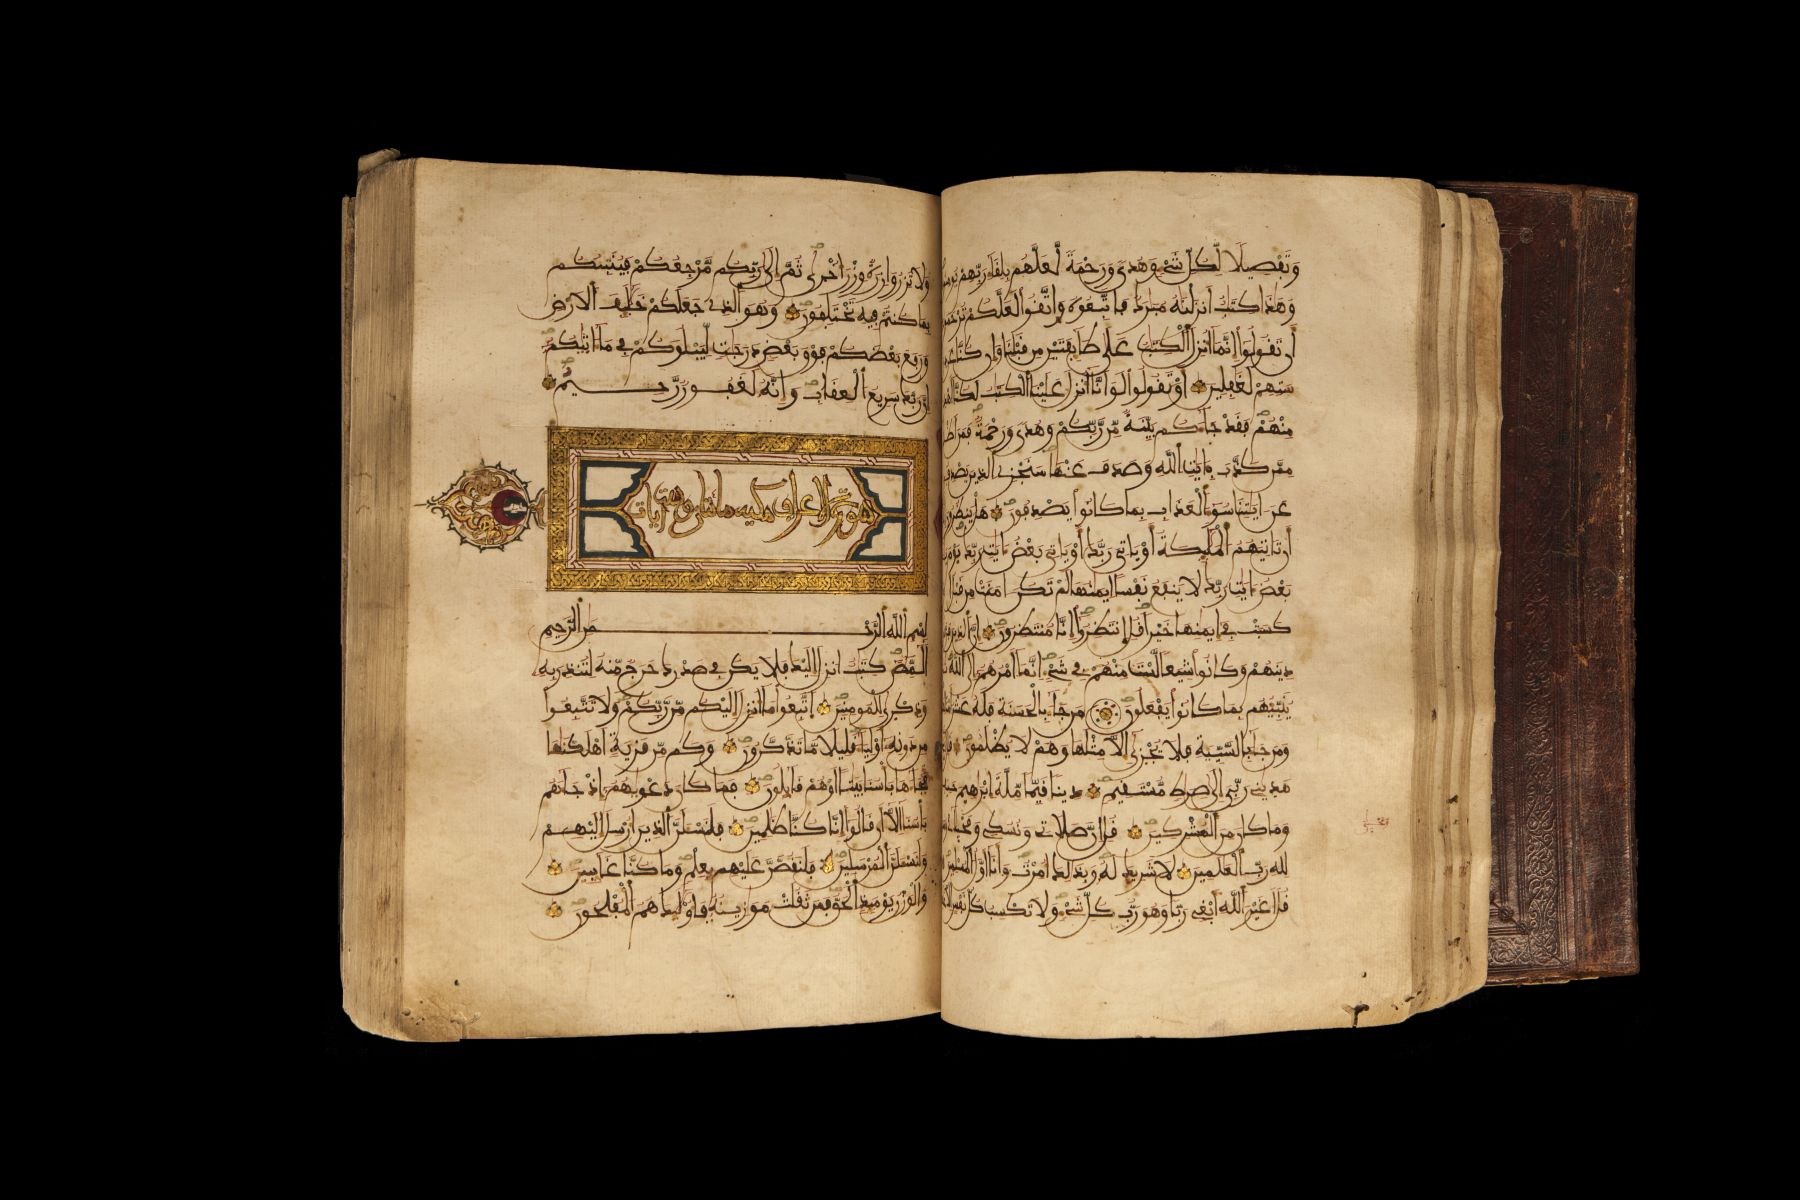 وتفصيلا لكل شيء وهدى ورحمة لعلهم بلقاء ربهم
وهذا كتب انزلنه مبرك فاتبعوه واتقوا لعلكم ترحمون
أن تقولوا إنما أنزل الكتب على طايفتين من قبلنا وإن كنا
ستهم لغفلين أو تقولوا لو انا أنزل علينا الكتب لكنا
منهم فقد جاءكم بينة من ربكم وهدى ورحمة فمن
ممن كذب بايت الله وصدف عنها سنجزي الذين
عن ايتنا سوء العذاب بما كانوا يصدفون هل ينظرون
أن تاتيهم المليكة أو ياتي ربك أو ياتي بعض ايت ربك يوم
بعض ايت ربك لا ينفع نفسا ايمنها لم تكن امنت من قبل
كسبت في ايمنها خيرا قل انتظروا إنا منتظرون إن الذين
دينهم وكانوا شيعا لست منهم في شيء انما أمرهم إلى الله
ينبيهم بما كانوا يفعلون من جاء بالحسنة فله عشر
ومن جاء بالسيية فلا يجزى إلا مثلها وهم لا يظلمون
هديني ربي إلى صرط مستقيم دينا قيما ملة ابرهيم
وما كان من المشركين قل ان صلاتي ونسكي
لله رب العلمين لا شريك له وبذلك امرت وانا اول المسلمين
قل اغير الله ابغي ربا وهو رب كل شيء ولا تكسب كل نفس
ولا تزر وازرة وزر أخرى ثم إلى ربكم مرجعكم فينبيكم
بما كنتم فيه تختلفون وهو الذي جعلكم خليف الارض
ورفع بعضكم فوق بعض درجت ليبلوكم في ما اتيكم
إن ربك سريع العقاب وانه لغفور رحيم
سورة الاعراف مكية مايتان وست ايات
بسم الله الرحمن الرحيم
المص كتب انزل اليك فلا يكن في صدرك حرج منه لتنذر به
وذكرى للمومنين اتبعوا ما أنزل إليكم من ربكم ولا تتبعوا
من دونه اولياء قليلا ما تذكرون وكم من قرية اهلكنها
فجاءها باسنا بيتا او هم قايلون فما كان دعويهم إذ جاءهم
باسنا إلا أن قالوا إنا كنا ظلمين فلنسلن الذين ارسل اليهم
ولنسلن المرسلين فلنقصن عليهم بعلم وما كنا غايبين
والوزن يوميذ الحق فمن ثقلت موزينه فاوليك هم المفلحون